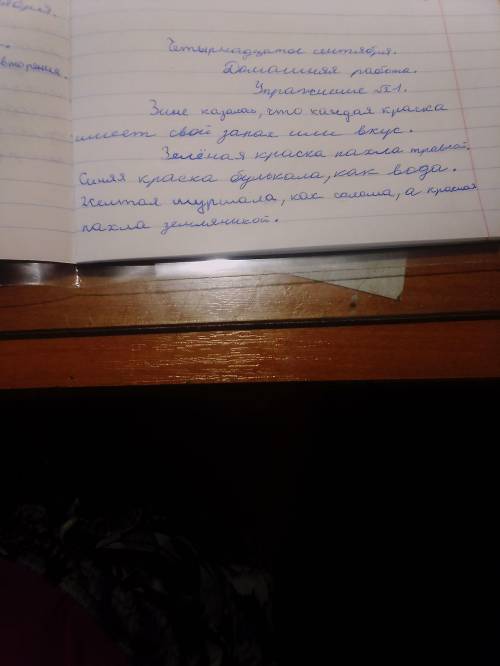 вторения.
Четырнадцатое сентября.
Домашняя работа.
Упражнение №1.
Зине казалось, что каждая краска
имеет свой запах или вкус.
Зелёная краска пахла травой.
Синяя краска булькала, как вода.
Желтая шуршала, как солома, а красная
пахла земляникой.